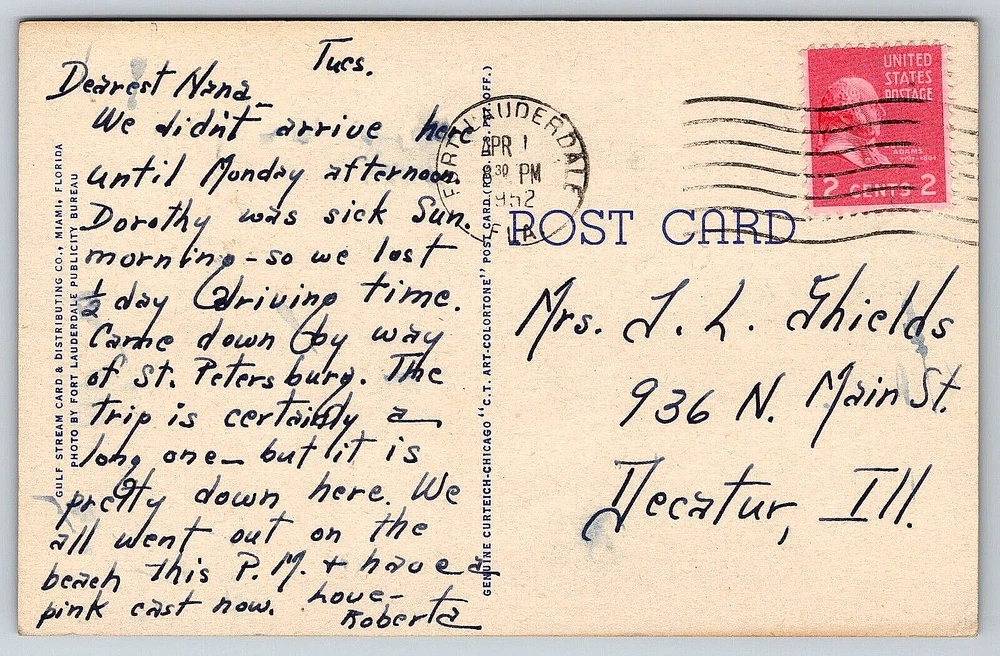 Tues.
Dearest Nana —
We didn't arrive here
until Monday afternoon.
Dorothy was sick Sun.
morning - so we lost
½ day driving time.
Came down by way
of St. Petersburg. The
trip is certainly a
long one — but it is
pretty down here. We
all went out on the
beach this P.M. + have a
pink cast now. Love —
Roberta
GULF STREAM CARD & DISTRIBUTING CO., MIAMI, FLORIDA
PHOTO BY FORT LAUDERDALE PUBLICITY BUREAU
GENUINE CURTEICH-CHICAGO "C.T. ART-COLORTONE" POST CARD (REG. U.S. PAT. OFF.)
FORT LAUDERDALE
APR 1
30 PM
1952
FLA
POST CARD
UNITED
STATES
POSTAGE
ADAMS
2 CENTS 2
Mrs. J. L. Shields
936 N. Main St.
Decatur, Ill.